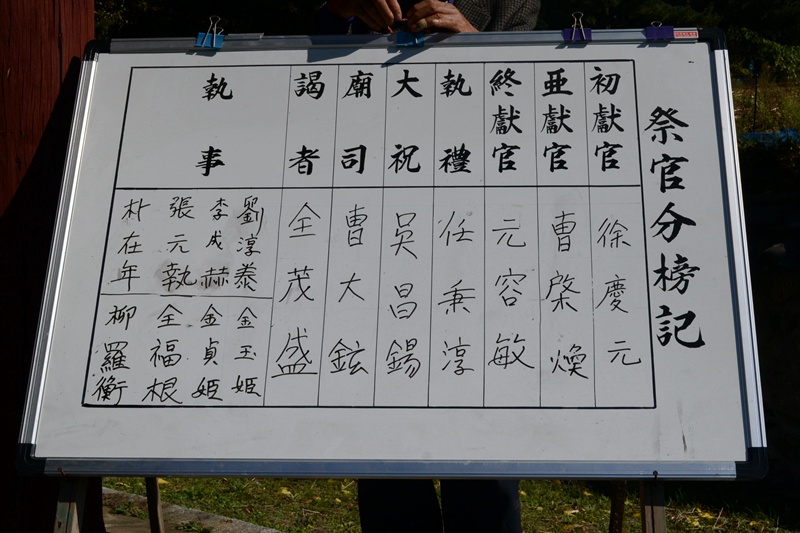 祭官分榜記
初獻官
徐慶元
亞獻官
曹棨煥
終獻官
元容敏
執禮
任秉淳
大祝
吳昌錫
廟司
曹大鉉
謁者
全茂盛
執事
劉淳泰
李成赫
張元執
朴在年
金玉姬
金貞姬
全福根
柳羅衡